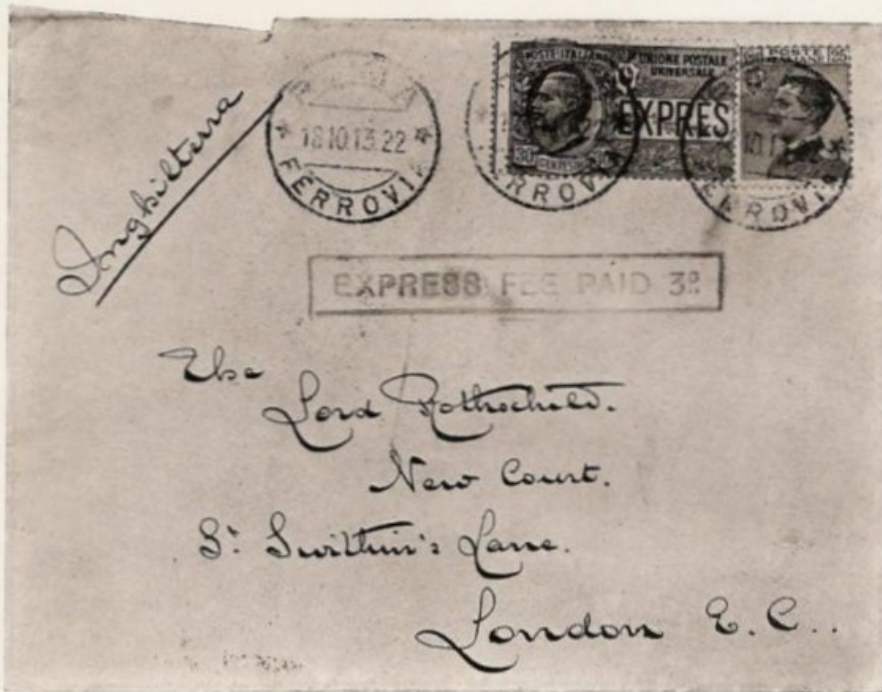 Inghilterra
18.10.13.22
FERROVIA
POSTE ITALIANE
UNIONE POSTALE
UNIVERSALE
EXPRES
30 CENTESIMI
EXPRESS FEE PAID 3ᴰ
The
Lord Rothschild.
New Court.
St Swithin's Lane.
London E. C..